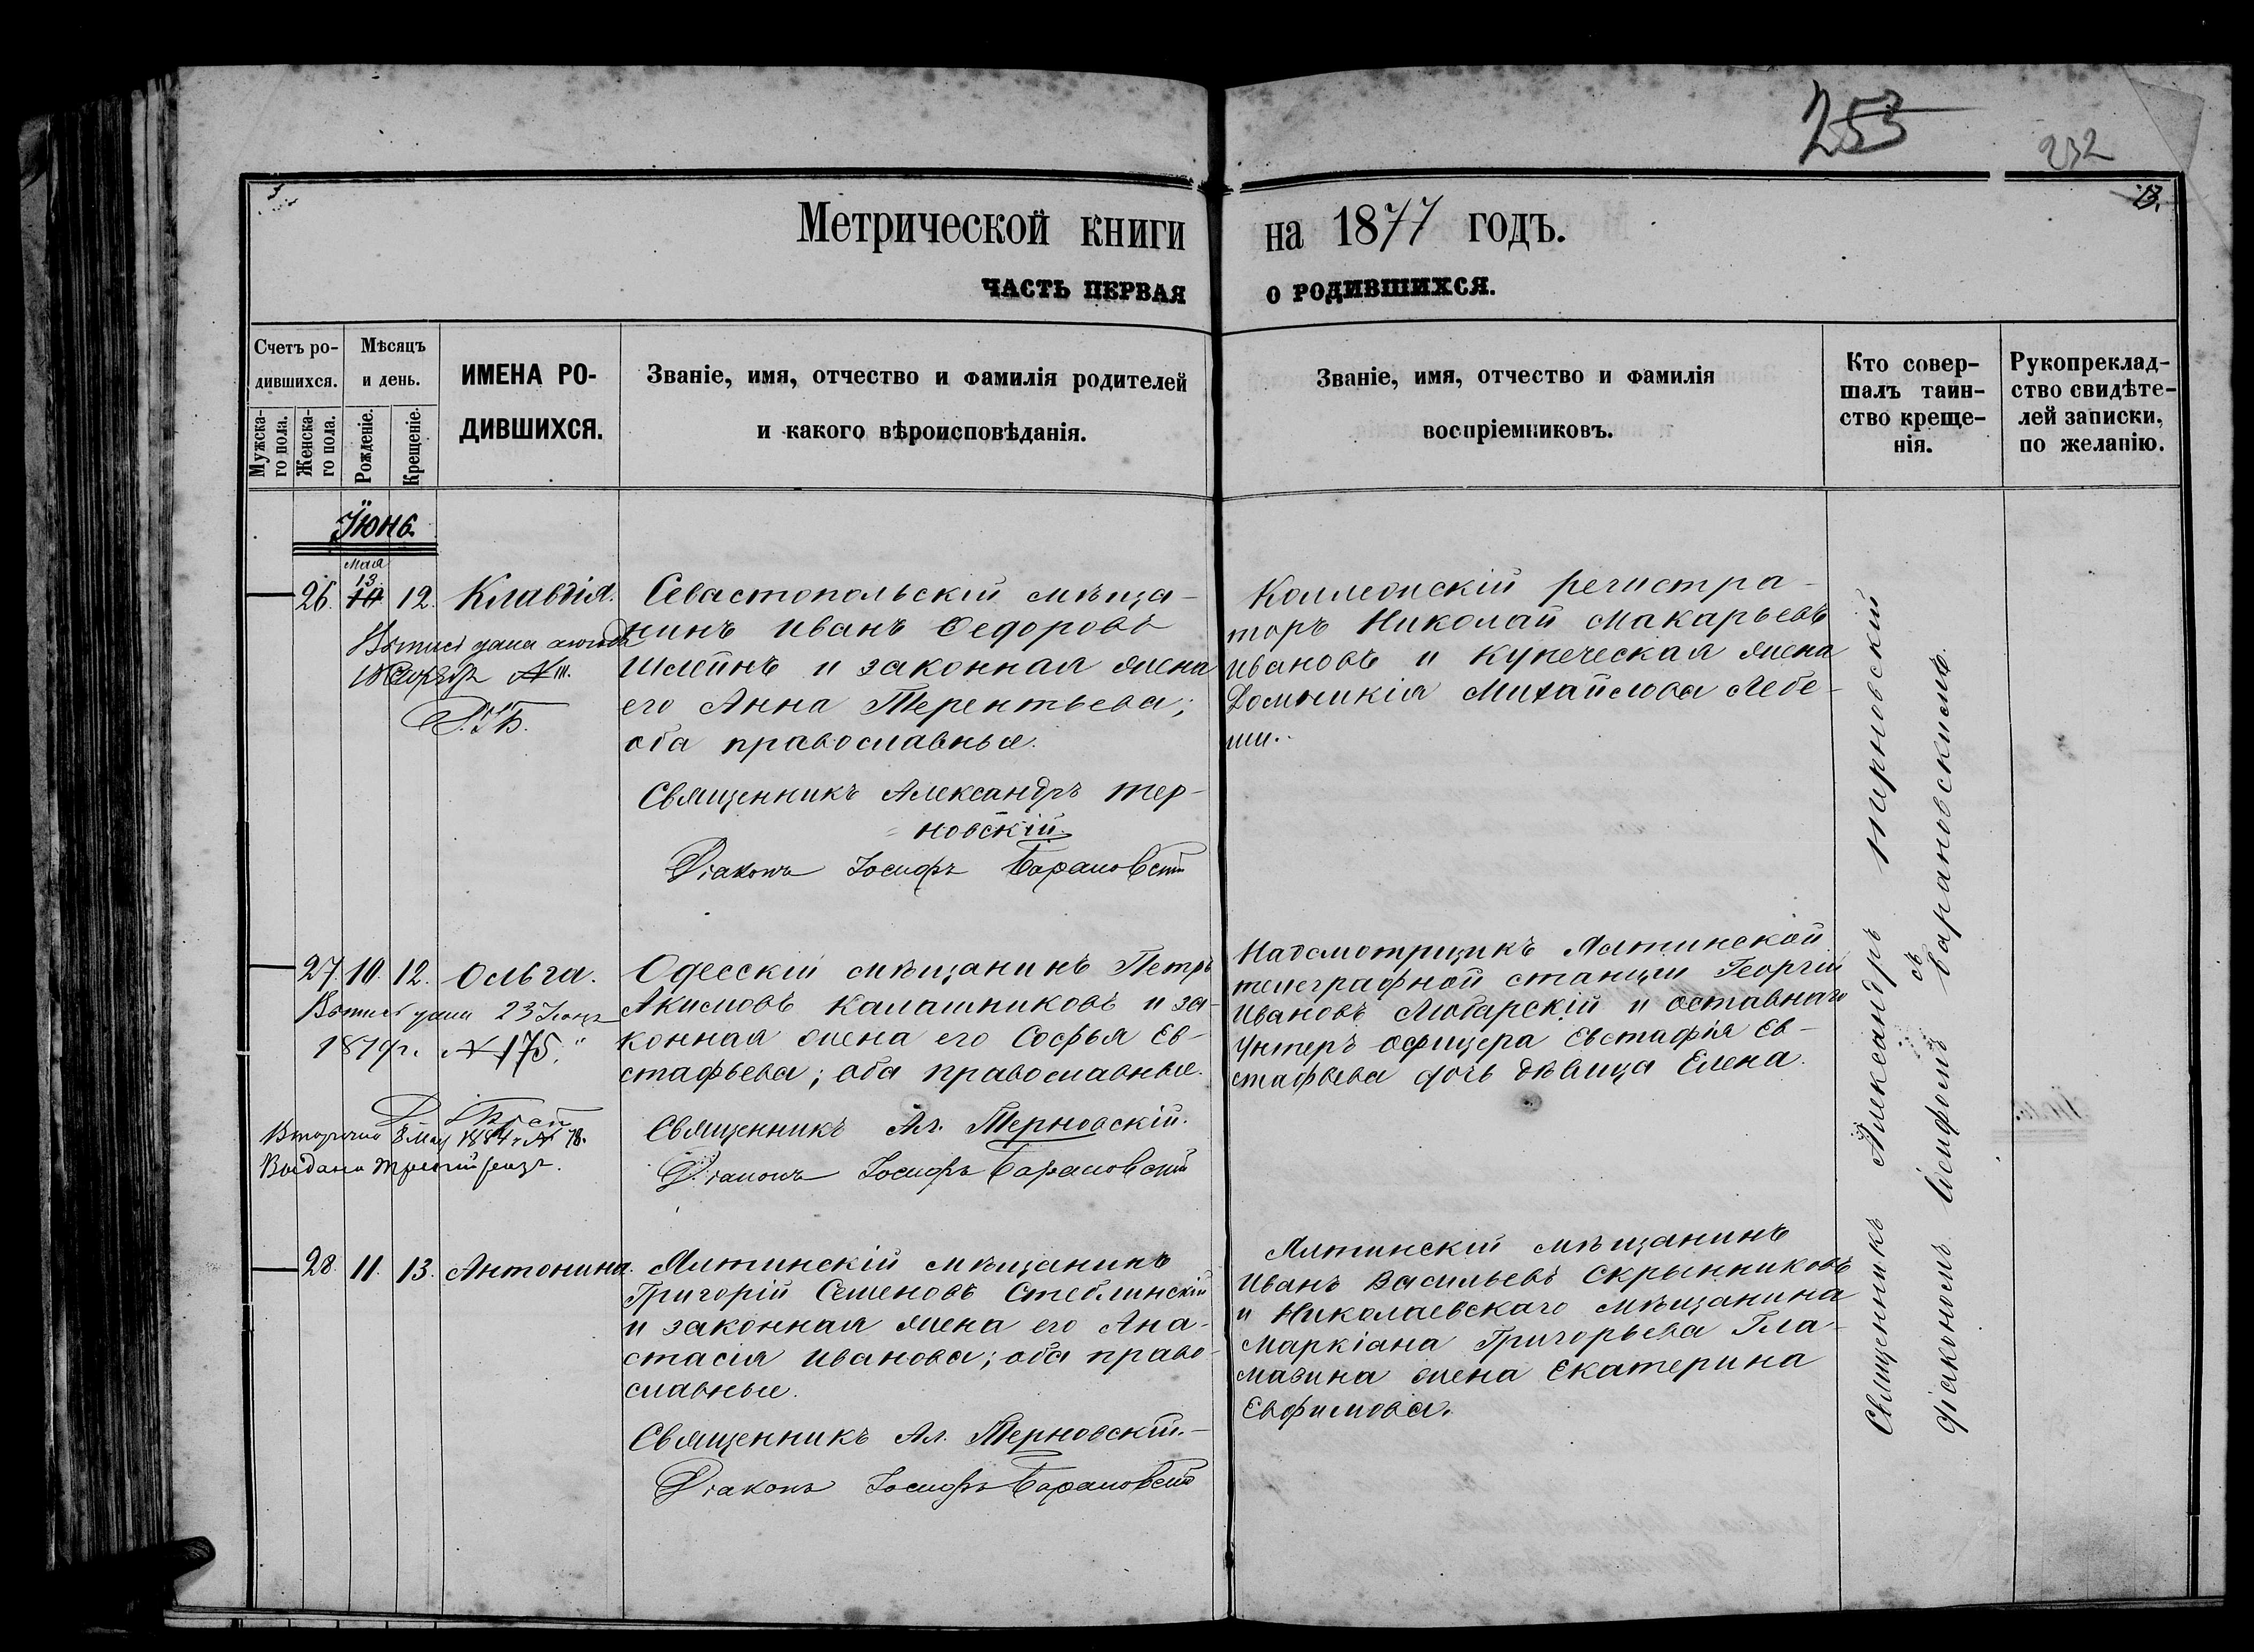 253
232
13.
Метрической книги на 1877 годъ.
ЧАСТЬ ПЕРВАЯ О РОДИВШИХСЯ.
Счетъ ро-
дившихся.
Мужска-
го пола.
Женска-
го пола.
Мѣсяцъ
и день.
Рожденіе.
Крещеніе.
ИМЕНА РО-
ДИВШИХСЯ.
Званіе, имя, отчество и фамилія родителей
и какого вѣроисповѣданія.
Званіе, имя, отчество и фамилія
воспріемниковъ.
Кто совер-
шалъ таин-
ство креще-
нія.
Рукопреклад-
ство свидѣте-
лей записки,
по желанію.
Іюнь.
Мая
13.
26. 10 12. Клавдія.
Севастопольскій мѣща-
нинъ Иванъ Федоровъ
и законная жена
его Анна Терентьева;
оба православные.
Священникъ Александръ Тер-
новскій.
Діаконъ Іосифъ Барановскій
Коллежскій регистра-
торъ Николай Макарьевъ
Ивановъ и купеческая жена
Домникія Михайлова Лебе-
27. 10. 12. Ольга.
Выпись дана 23 Іюня
№ 175.
Вторично 8 Мая 1884 г. № 78.
Выдано третій разъ.
Одесскій мѣщанинъ Петръ
Акимовъ Калашниковъ и за-
конная жена его Софья Ев-
стафьева; оба православные.
Священникъ Ал. Терновскій.
Діаконъ Іосифъ Барановскій
Надсмотрщикъ Ялтинской
телеграфной станціи Георгій
Ивановъ Любарскій и оставнаго
Унтеръ Офицера Евстафія Ев-
стафьева дочь дѣвица Елена.
28. 11. 13. Антонина.
Ялтинскій мѣщанинъ
Григорій Семеновъ Стеблинскій
и законная жена его Ана-
стасія Иванова; оба право-
славные.
Священникъ Ал. Терновскій.
Діаконъ Іосифъ Барановскій
Ялтинскій мѣщанинъ
Иванъ Васильевъ Скрынниковъ
и Николаевскаго мѣщанина
Маркіана Григорьева Гла-
мазина жена Екатерина
Евфимова.
Священникъ Александръ Терновскій
съ
діакономъ Іосифомъ Барановскимъ.